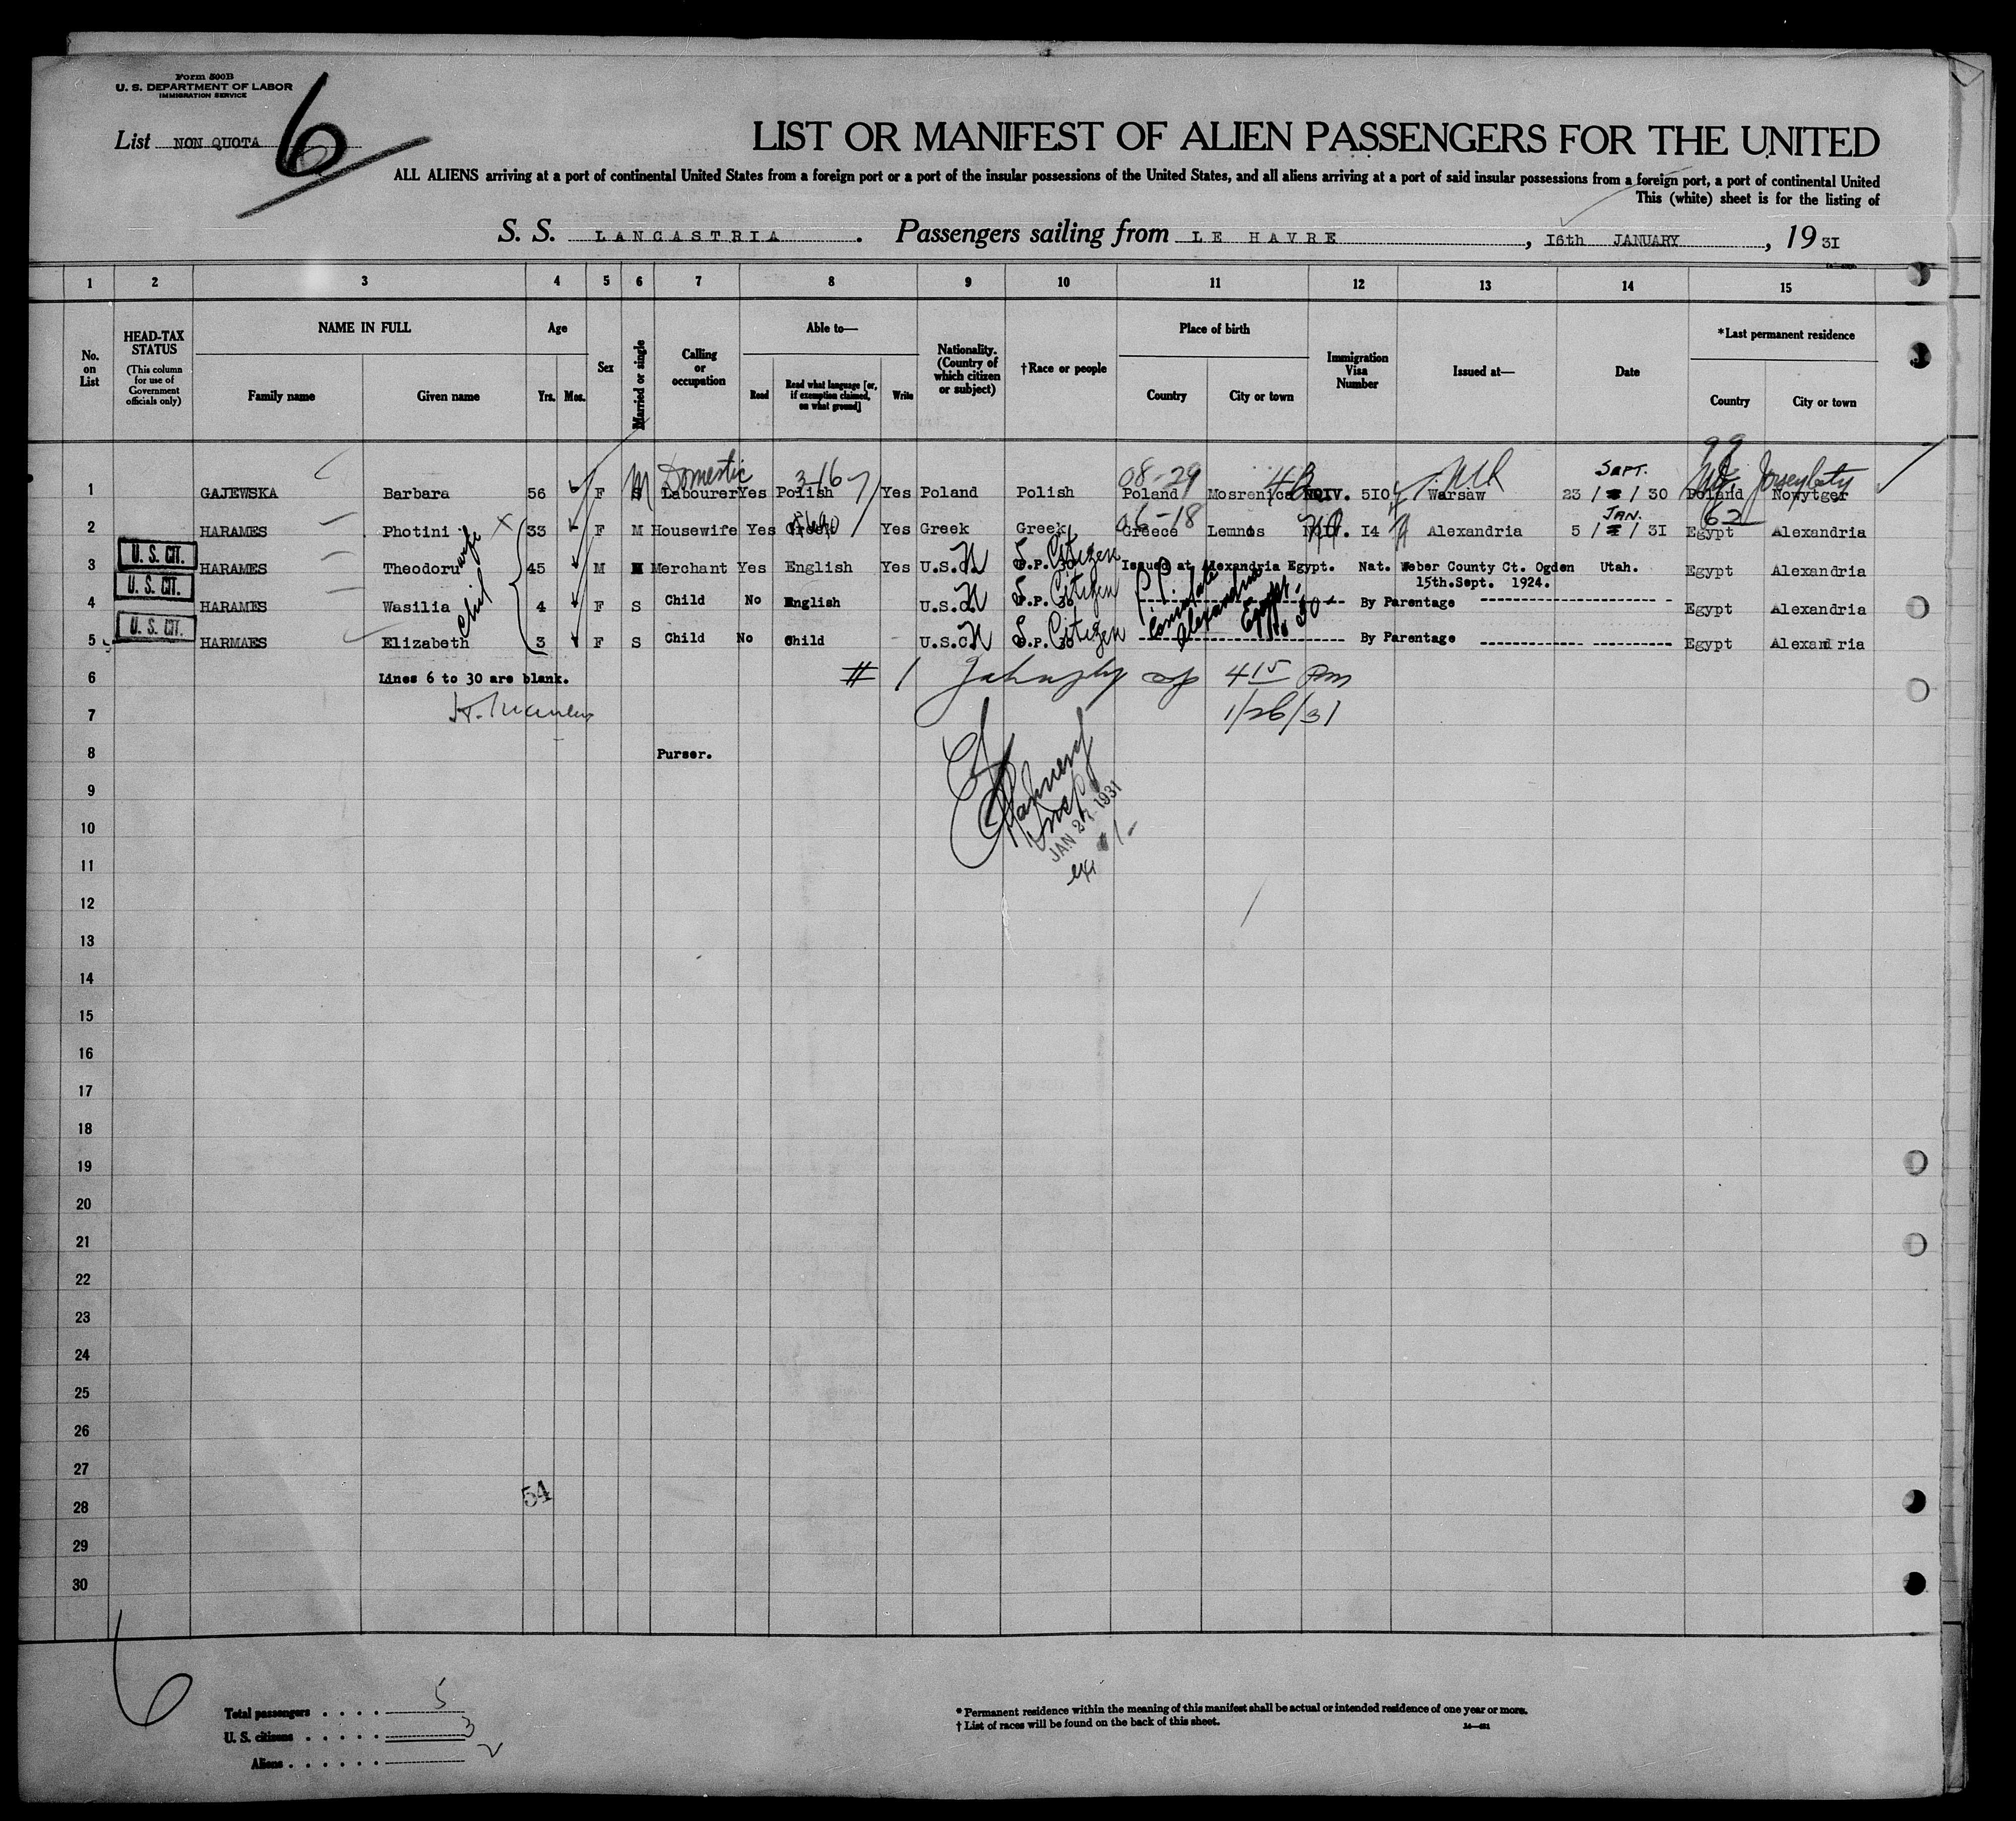 Form 500B
U. S. DEPARTMENT OF LABOR
IMMIGRATION SERVICE
List NON QUOTA 6
LIST OR MANIFEST OF ALIEN PASSENGERS FOR THE UNITED
ALL ALIENS arriving at a port of continental United States from a foreign port or a port of the insular possessions of the United States, and all aliens arriving at a port of said insular possessions from a foreign port, a port of continental United
This (white) sheet is for the listing of
S. S. LANCASTRIA . Passengers sailing from LE HAVRE , 16th JANUARY , 1931
1 2 3 4 5 6 7 8 9 10 11 12 13 14 15
No. on List
HEAD-TAX STATUS (This column for use of Government officials only)
NAME IN FULL
Family name Given name
Age
Yrs. Mos.
Sex
Married or single
Calling or occupation
Able to—
Read Read what language [or, if exemption claimed, on what ground] Write
Nationality. (Country of which citizen or subject)
†Race or people
Place of birth
Country City or town
Immigration Visa Number
Issued at—
Date
*Last permanent residence
Country City or town
Domestic 316 08-29 SEPT. 99 Jersey City
1 GAJEWSKA Barbara 56 F M Labourer Yes Polish Yes Poland Polish Poland Mosrenica NQIV. 510 Warsaw 23 / / 30 Poland Nowytger
06-18 JAN. 62
2 HARAMES Photini wife 33 F M Housewife Yes Greek Yes Greek Greek Greece Lemnos 14 Alexandria 5 / / 31 Egypt Alexandria
3 U. S. CIT. HARAMES Theodoru 45 M M Merchant Yes English Yes U.S. Citizen Issued at Alexandria Egypt. Nat. Weber County Ct. Ogden Utah. Egypt Alexandria
15th.Sept. 1924.
4 U. S. CIT. HARAMES Wasilia 4 F S Child No English U.S.C. Citizen By Parentage Egypt Alexandria
5 U. S. CIT. HARMAES Elizabeth 3 F S Child No Child U.S.C. Citizen By Parentage Egypt Alexandria
P.P. Consulate Alexandria Egypt.
6 Lines 6 to 30 are blank. # 1 415 Pm
7 1/26/31
8 Purser.
9
JAN 27 1931
10
11
12
13
14
15
16
17
18
19
20
21
22
23
24
25
26
27
28 54
29
30
6
Total passengers . . . . 5
U. S. citizens . . . . . 3
Aliens . . . . . . 2
* Permanent residence within the meaning of this manifest shall be actual or intended residence of one year or more.
† List of races will be found on the back of this sheet.